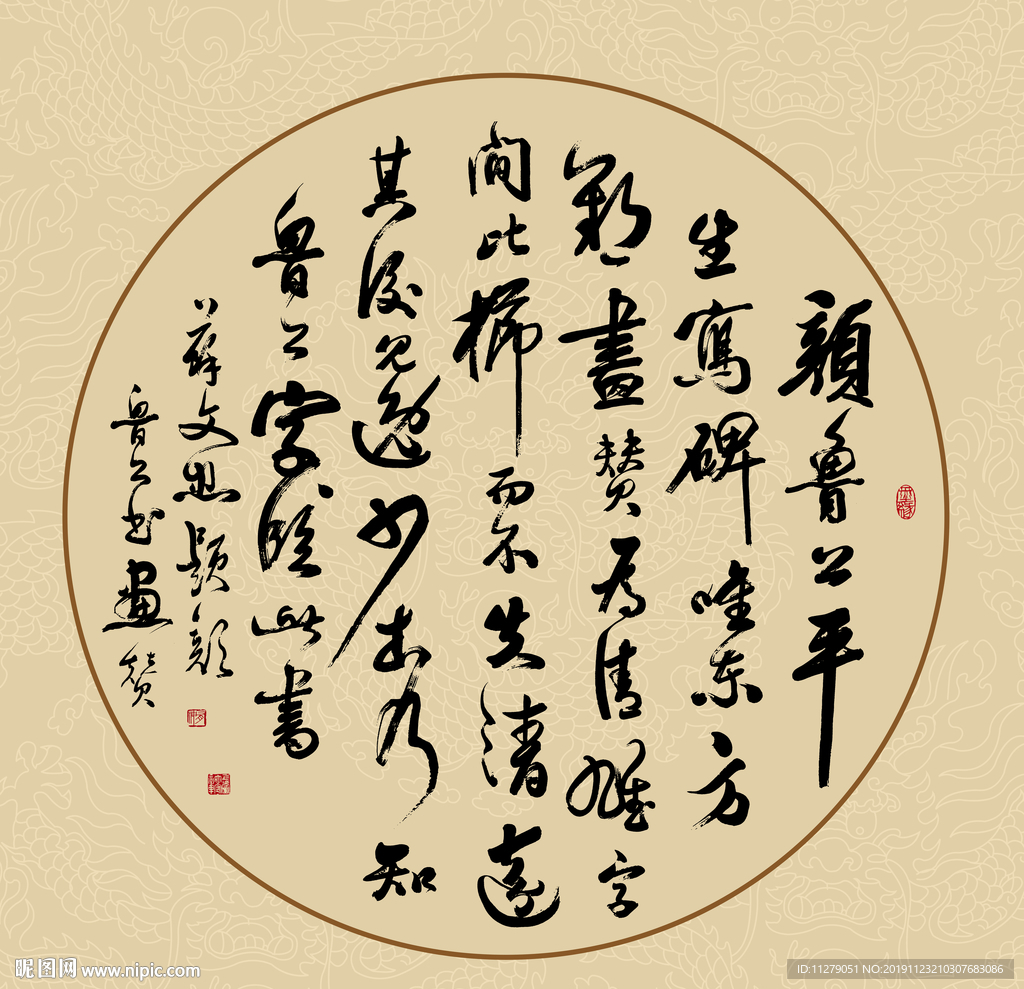 顏魯公平
生寫碑唯东方
朔畫贊为清雄字
间比櫛而不失清遠
其後见逸少本乃知
魯公字字臨此書
蘇文忠題顏
魯公书画赞
昵图网 www.nipic.com
ID:11279051 NO:20191123210307683086